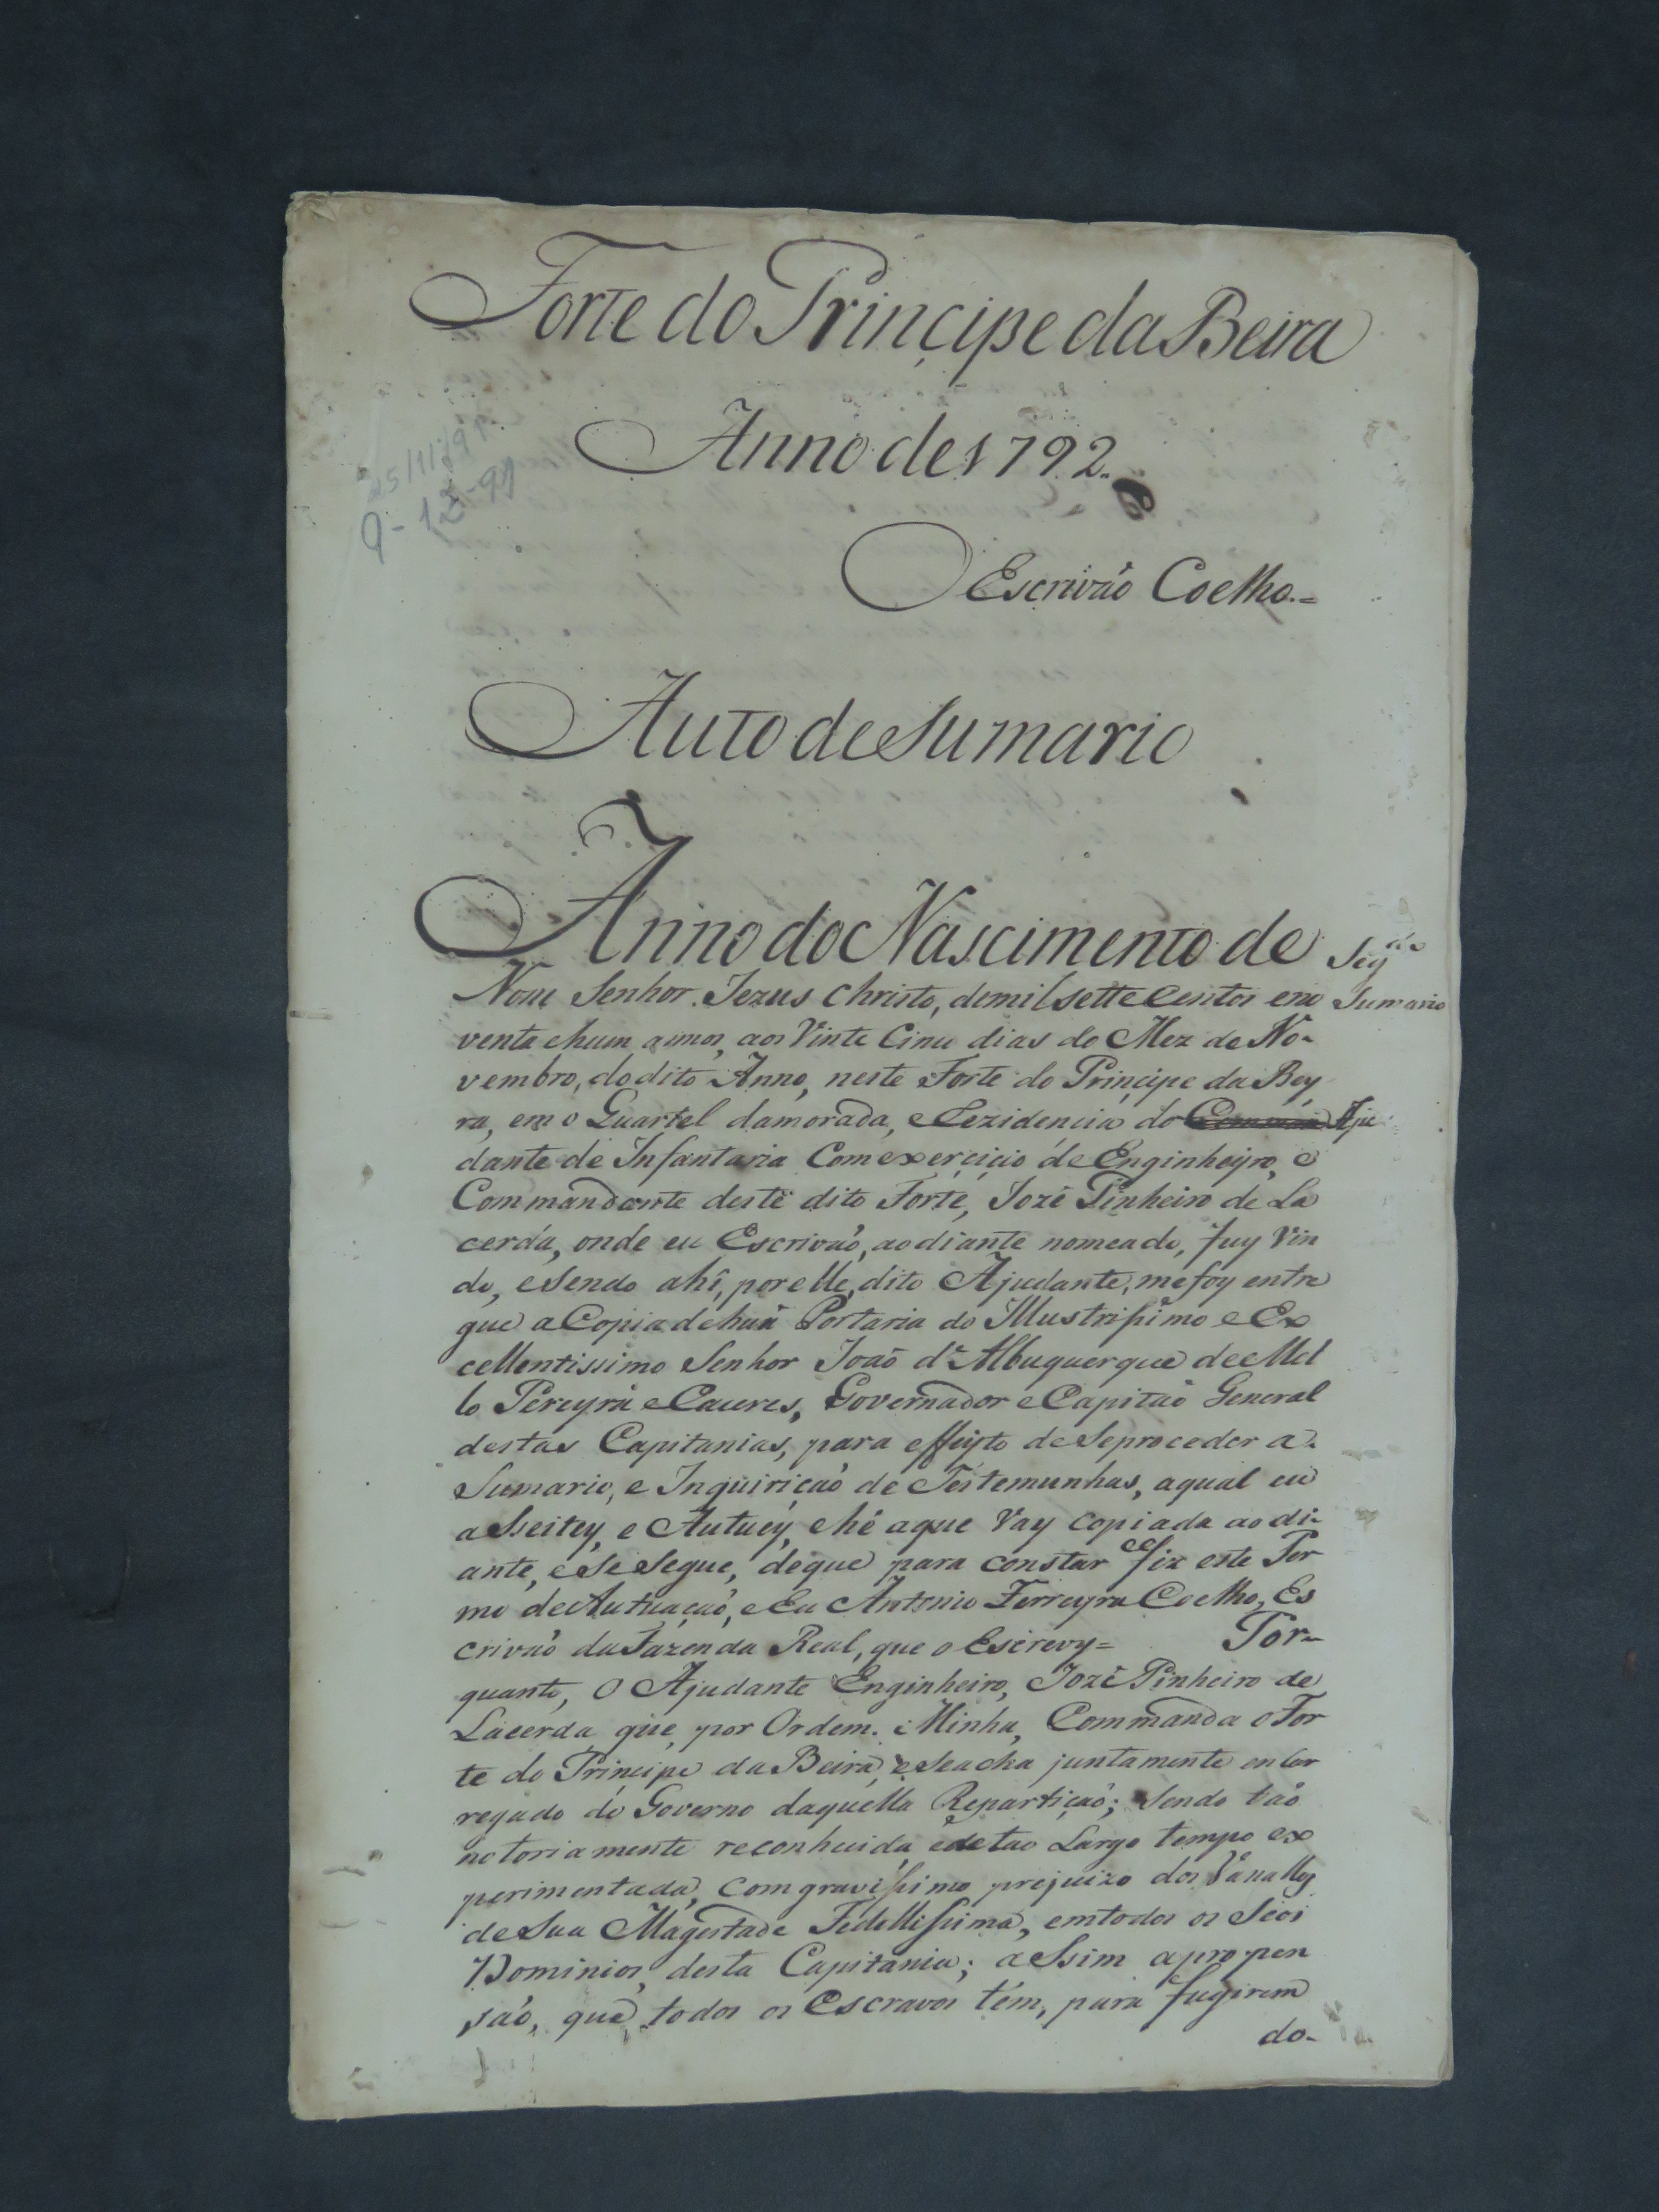 Forte do Principe da Beira
Anno de 1792.
25/11/91
9-12-91
Escrivaõ Coelho.=
Auto de Sumario
Anno do Nascimento de
Nosso Senhor Jezus Christo, de mil sette Centos e no
Sumario
venta e hum annos, aos Vinte Cinco dias do Mez de No-
vembro, do dito Anno, neste Forte do Principe da Bey
ra, em o Quartel da morada, e Rezidencia do Aju
dante de Infantaria Com exerçiçio de Enginheyro, e
Commandante deste dito Forte, Jozê Pinheiro de La
cerda, onde eu Escrivaõ, ao diante nomeado, fuy Vin
do, e Sendo ahî, por elle, dito Ajudante, me foy entre
gue a Copia de huã Portaria do Illustrissimo e Ex
cellentissimo Senhor Joaõ d'Albuquerque de Mel
lo Pereyra e Caceres, Governador e Capitaõ General
destas Capitanias, para effeyto de Se proceder a
Sumario, e Inquiriçaõ de Testemunhas, a qual eu
asseitey, e Autuêy, e hê a que Vay copiada ao di-
ante, e Se Segue, de que para constar fiz este Ter
mo de Autuaçaõ, e Eu Antonio Ferreyra Coelho, Es
crivaõ da Fazenda Real, que o Escrevy= Por-
quanto, o Ajudante Enginheiro, Jozê Pinheiro de
Lacerda que, por Ordem Minha, Commanda o For
te do Principe da Beira, e Se acha juntamente encar
regado do Governo daquella Repartiçaõ; Sendo taõ
notoriamente reconhecida, e de tao Largo tempo ex
perimentada, com gravissimo prejuizo dos Vasallos
de Sua Magestade Fedellissima, em todos os Seos
Dominios, desta Capitania; assim a propen
saõ, que todos os Escravos têm, para fugirem
do-